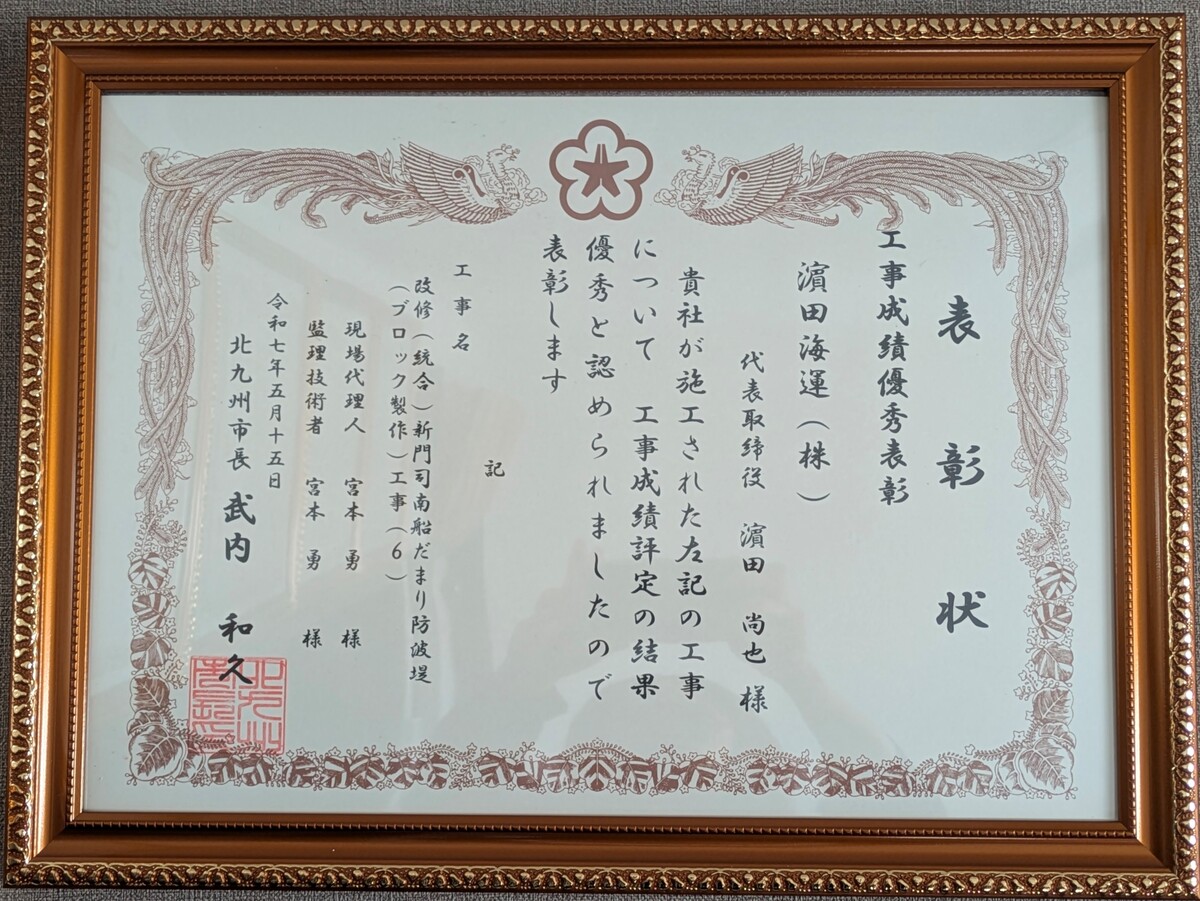 表彰状
工事成績優秀表彰
濵田海運(株)
代表取締役 濵田 尚也 様
貴社が施工された左記の工事
について 工事成績評定の結果
優秀と認められましたので
表彰します
記
工事名
改修(統合)新門司南船だまり防波堤
(ブロック製作)工事(6)
現場代理人 宮本 勇 様
監理技術者 宮本 勇 様
令和七年五月十五日
北九州市長 武内 和久
北九州
市長印